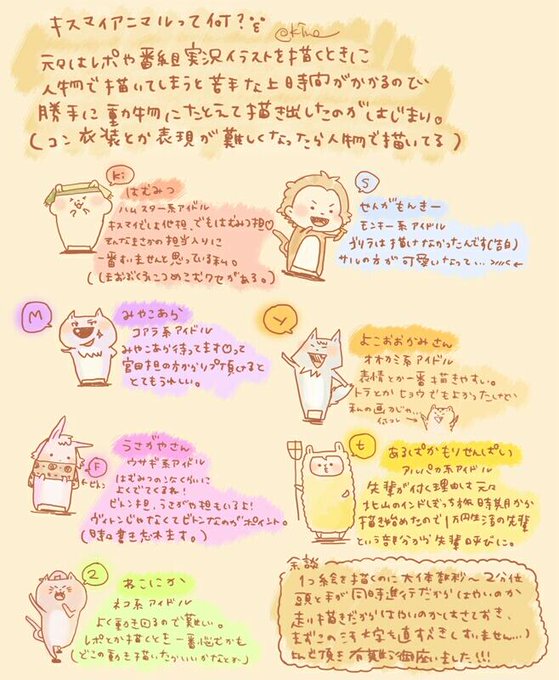 キスマイアニマルって何？
@Kina
元々はレポや番組実況イラストを描くときに
人物で描いてしまうと苦手な上時間がかかるので
勝手に動物にたとえて描き出したのがはじまり。
(コン衣装とか表現が難しくなったら人物で描いてる)
Ki
はむみつ
ハムスター系アイドル
キスマイでは他担、でもはむみつ担♡
そんなまさかの担当入りに
一番すいませんと思っている私。
(ほおぶくろにつめこむクセがある。)
S
せんがもんきー
モンキー系アイドル
ゴリラは描けなかったんです(告白)
サルの方が可愛いなって…
M
みやこあら
コアラ系アイドル
みやこあら待ってます♡って
宮田担の方からリプ頂けると
とてもうれしい。
Y
よこおおかみさん
オオカミ系アイドル
表情とか一番描きやすい。
トラとかヒョウでもよかったけど
私の画力じゃ…
F
ビトン
うさがやさん
ウサギ系アイドル
はむみつのとなりくらいに
よくでてくるね!
ビトン担、うさがや担もいるよ!
ヴィトンじゃなくてビトンなのがポイント。
(時々書き忘れます。)
t
あるぱかもりせんぱい
アルパカ系アイドル
先輩が付く理由は元々
北山のインドぼっち旅時期から
描き始めたので1万円生活の先輩
という部分から先輩呼びに。
2
ねこにか
ネコ系アイドル
よく動き回るので難しい。
レポとか描くとき一番悩むかも
(どこの動き描いたらいいかなとか)
余談
1つ絵を描くのに大体数秒〜2分位
頭と手が同時進行だからはやいのか
走り描きだからはやいのかはさておき、
まずこの汚文字も直すべき(すいません…)
読んで頂き有難う御座いました!!!